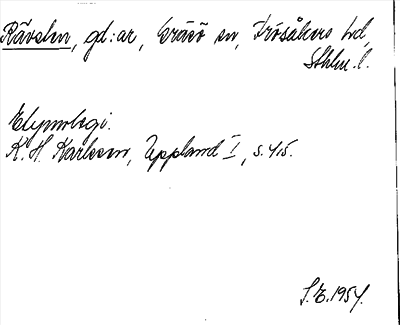 Rävsten, gd:ar, Gräsö sn, Frösåkers hd,
Sthlm. l.
Etymologi.
K. H. Karlsson, Uppland I, s. 415.
S.E. 1954.